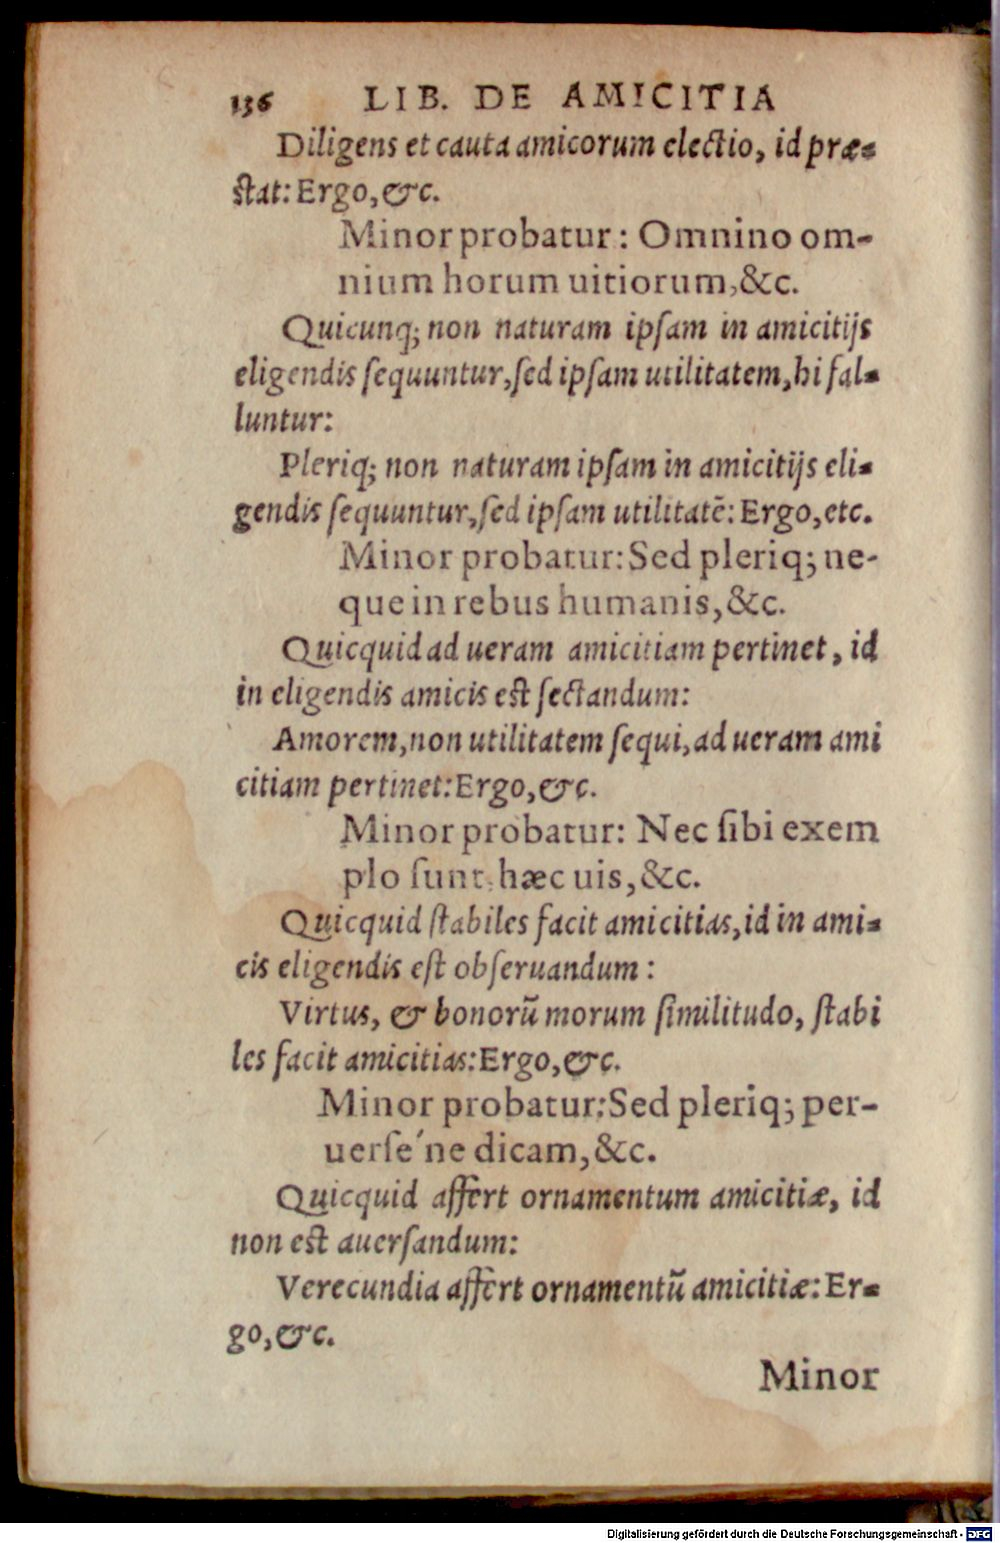 136 LIB. DE AMICITIA
Diligens et cauta amicorum electio, id præ-
stat: Ergo, &c.
Minor probatur: Omnino om-
nium horum uitiorum, &c.
Quicunq; non naturam ipsam in amicitijs
eligendis sequuntur, sed ipsam utilitatem, hi fal-
luntur:
Pleriq; non naturam ipsam in amicitijs eli-
gendis sequuntur, sed ipsam utilitatē: Ergo, etc.
Minor probatur: Sed pleriq; ne-
que in rebus humanis, &c.
Quicquid ad ueram amicitiam pertinet, id
in eligendis amicis est sectandum:
Amorem, non utilitatem sequi, ad ueram ami
citiam pertinet: Ergo, &c.
Minor probatur: Nec sibi exem
plo sunt, hæc uis, &c.
Quicquid stabiles facit amicitias, id in ami-
cis eligendis est obseruandum:
Virtus, & bonorū morum similitudo, stabi
les facit amicitias: Ergo, &c.
Minor probatur: Sed pleriq; per-
uersé ne dicam, &c.
Quicquid affert ornamentum amicitiæ, id
non est auersandum:
Verecundia affert ornamentū amicitiæ: Er-
go, &c.
Minor
Digitalisierung gefördert durch die Deutsche Forschungsgemeinschaft - DFG